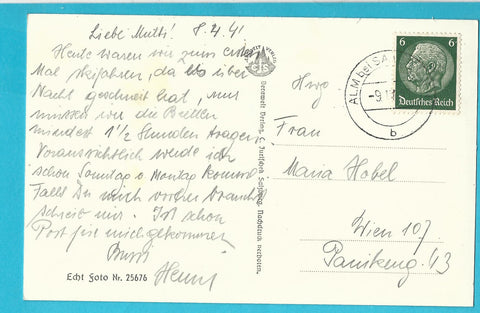 Liebe Mutti! 8.4.41
Heute waren wir zum ersten
Mal skifahren, da es über
Nacht geschneit hat, nur
müssen wir die Bretter
mindest 1½ Stunden tragen.
Voraussichtlich werde ich
schon Sonntag o. Montag kommen.
Falls Du mich vorher brauchst
schreib mir. Ist schon
Post für mich gekommen
Bussi
Echt Foto Nr. 25676
Verlag, C. Jurischek, Salzburg. Nachdruck verboten.
6 6
Deutsches Reich
ALM bei SA
-9.
b
Frau
Maria Hobel
Wien 107
43